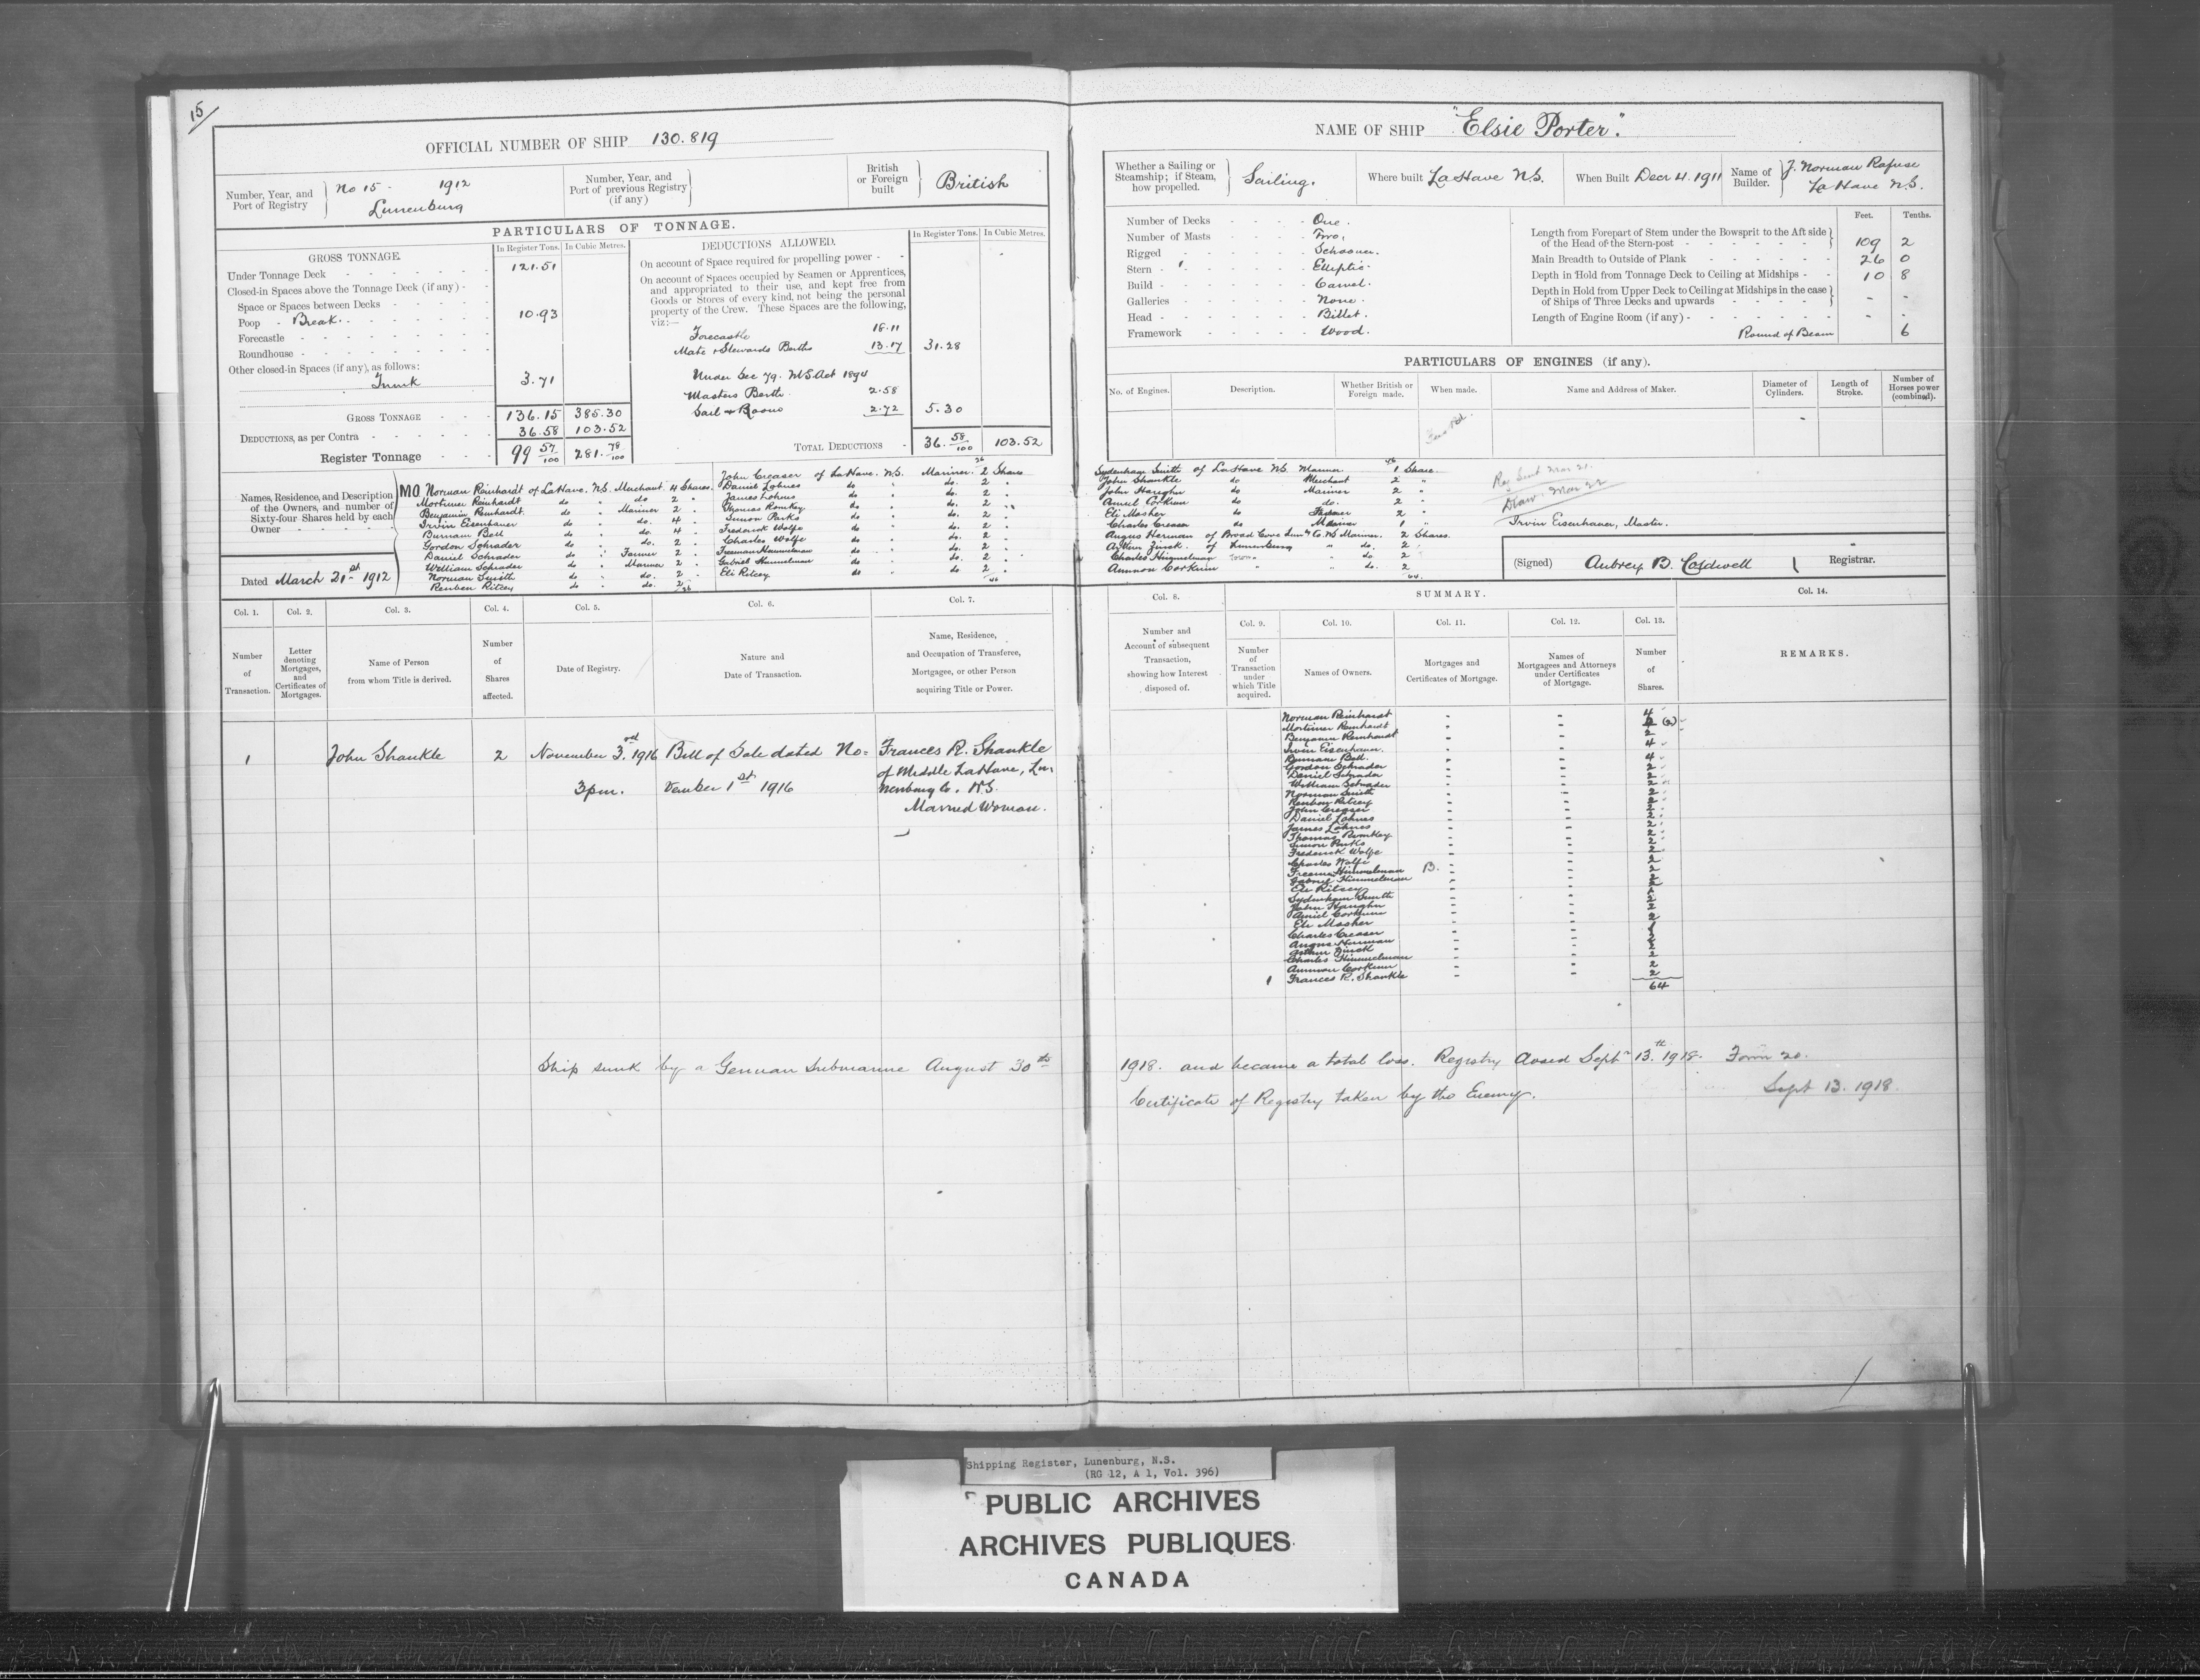 15/
OFFICIAL NUMBER OF SHIP 130.819
Number, Year, and Port of Registry } No 15 - 1912 Lunenburg
Number, Year, and Port of previous Registry (if any)
British or Foreign built British
PARTICULARS OF TONNAGE.
GROSS TONNAGE. In Register Tons. In Cubic Metres.
Under Tonnage Deck 121.51
Closed-in Spaces above the Tonnage Deck (if any) -
Space or Spaces between Decks
Poop - Break 10.93
Forecastle
Roundhouse
Other closed-in Spaces (if any), as follows:
Trunk 3.71
GROSS TONNAGE 136.15 385.30
DEDUCTIONS, as per Contra 36.58 103.52
Register Tonnage 99 57/100 281. 78/100
DEDUCTIONS ALLOWED. In Register Tons. In Cubic Metres.
On account of Space required for propelling power - -
On account of Spaces occupied by Seamen or Apprentices,
and appropriated to their use, and kept free from
Goods or Stores of every kind, not being the personal
property of the Crew. These Spaces are the following,
viz:—
Forecastle 18.11
Mate & Stewards Berths 13.17 31.28
Under Sec 79. M S Act 1894
Masters Berth 2.58
Sail Room 2.72 5.30
TOTAL DEDUCTIONS 36. 58/100 103.52
Names, Residence, and Description
of the Owners, and number of
Sixty-four Shares held by each
Owner
Dated March 21st 1912
MO Norman Reinhardt of LaHave. N.S. Merchant 4 Shares.
Mortimer Reinhardt do " do 2 "
Benjamin Reinhardt. do " Mariner 2 "
Irvin Eisenhauer do " do. 4 "
Burnam Bell do " do. 4 "
Gordon Schrader do " do. 2 "
Daniel Schrader do " Farmer 2 "
William Schrader do " Mariner 2 "
Norman Smith do " do. 2 "
Reuben Ritcey do " do. 2
26
John Creaser of LaHave. N.S. Mariner. 2 Shares
Daniel Lohnes do " do. 2 "
James Lohnes do " do. 2 "
Thomas Romkey do " do. 2 "
Simon Parks do " do. 2 "
Frederick Wolfe do " do. 2 "
Charles Wolfe do " do. 2 "
Freeman Himmelman do " do. 2 "
Gabriel Himmelman do " do. 2 "
Eli Ritcey do " do. 2 "
46
Col. 1. Col. 2. Col. 3. Col. 4. Col. 5. Col. 6. Col. 7.
Number of Transaction.
Letter denoting Mortgages, and Certificates of Mortgages.
Name of Person from whom Title is derived.
Number of Shares affected.
Date of Registry.
Nature and Date of Transaction.
Name, Residence, and Occupation of Transferee, Mortgagee, or other Person acquiring Title or Power.
1 John Shankle 2 November 3rd. 1916 Bill of Sale dated No= Frances R. Shankle
3pm. vember 1st 1916 of Middle LaHave, Lu-
nenburg Co. N.S.
Married Woman.
NAME OF SHIP "Elsie Porter".
Whether a Sailing or Steamship; if Steam, how propelled. } Sailing.
Where built LaHave N.S.
When Built Decr 4. 1911
Name of Builder. } J. Norman Rafuse LaHave N.S.
Number of Decks One.
Number of Masts Two.
Rigged Schooner.
Stern Elliptic.
Build Carvel.
Galleries None.
Head Billet.
Framework Wood.
Feet. Tenths.
Length from Forepart of Stem under the Bowsprit to the Aft side
of the Head of the Stern-post 109 2
Main Breadth to Outside of Plank 26 0
Depth in Hold from Tonnage Deck to Ceiling at Midships - - 10 8
Depth in Hold from Upper Deck to Ceiling at Midships in the case
of Ships of Three Decks and upwards - -
Length of Engine Room (if any) - -
Round of Beam 6
PARTICULARS OF ENGINES (if any).
No. of Engines. Description. Whether British or Foreign made. When made. Name and Address of Maker. Diameter of Cylinders. Length of Stroke. Number of Horses power (combined).
46
Sydenham Smith of LaHave N.S. Mariner 1 Share
John Shankle do Merchant 2 "
John Haughn do Mariner 2 "
Amiel Corkum do do. 2 "
Eli Mosher do Farmer 2 "
Charles Creaser do Mariner 1 "
Angus Herman of Broad Cove Lun'g Co. N.S. Mariner. 2 Shares
Arthur Zinck. of Lunenburg " do. 2
Charles Himmelman " do. 2
Ammon Corkum " " do. 2
64.
Reg Sent Mar 21.
Mar 22
Irvin Eisenhauer, Master.
(Signed) Aubrey B. Caldwell Registrar.
Col. 8. SUMMARY. Col. 14.
Col. 9. Col. 10. Col. 11. Col. 12. Col. 13.
Number and Account of subsequent Transaction, showing how Interest disposed of.
Number of Transaction under which Title acquired.
Names of Owners.
Mortgages and Certificates of Mortgage.
Names of Mortgagees and Attorneys under Certificates of Mortgage.
Number of Shares.
REMARKS.
Norman Reinhardt 4
Mortimer Reinhardt 2 (2)
Benjamin Reinhardt 2
Irvin Eisenhauer. 4
Burnam Bell. 4
Gordon Schrader 2
Daniel Schrader 2
William Schrader 2
Norman Smith 2
Reuben Ritcey 2
John Creaser 2
Daniel Lohnes 2
James Lohnes 2
Thomas Romkey 2
Simon Parks 2
Frederick Wolfe 2
Charles Wolfe 2
Freeman Himmelman B. 2
Gabriel Himmelman 2
Eli Ritcey 2
Sydenham Smith 1
John Haughn 2
Amiel Corkum 2
Eli Mosher 2
Charles Creaser 1
Angus Herman 2
Arthur Zinck 2
Charles Himmelman 2
Ammon Corkum 2
1 Frances R. Shankle 2
64
Ship sunk by a German Submarine August 30th 1918. and became a total loss. Registry closed Septr 13th. 1918. Form 20.
Certificate of Registry taken by the Enemy. Sept 13. 1918.
Shipping Register, Lunenburg, N.S.
(RG 12, A 1, Vol. 396)
PUBLIC ARCHIVES
ARCHIVES PUBLIQUES
CANADA